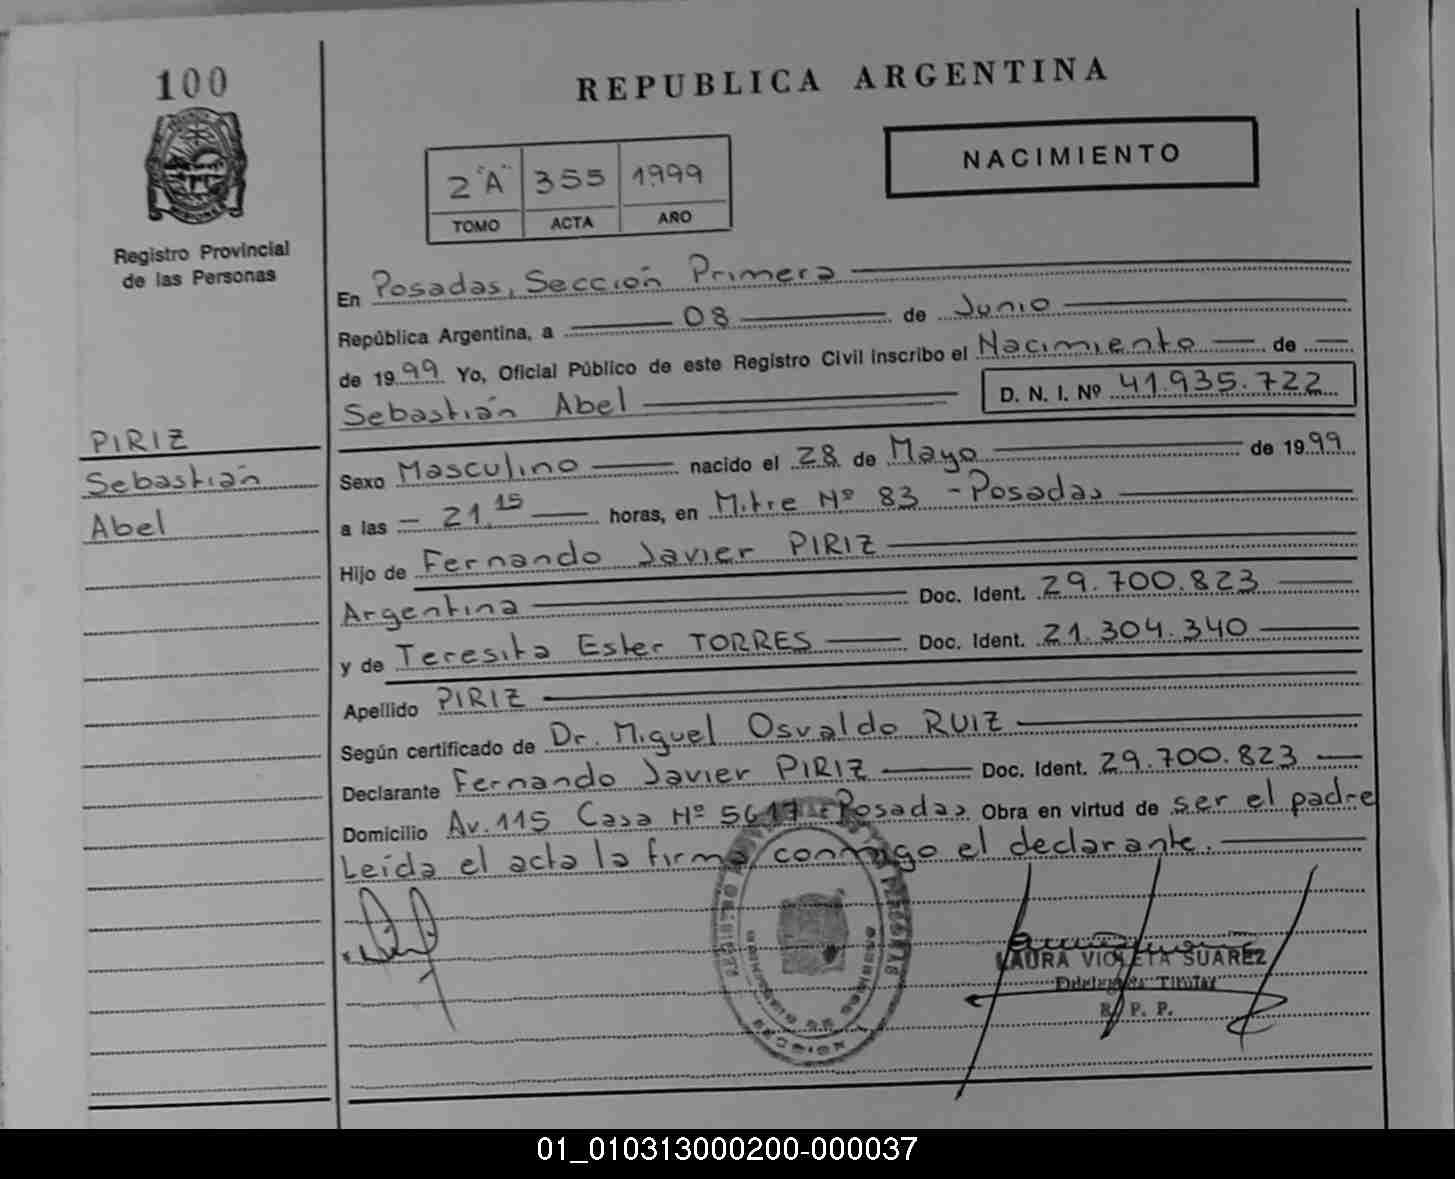 100
REPUBLICA ARGENTINA
NACIMIENTO
2"A" 355 1999
TOMO ACTA AÑO
Registro Provincial
de las Personas
En Posadas, Sección Primera
República Argentina, a 08 de Junio
de 1999 Yo, Oficial Público de este Registro Civil inscribo el Nacimiento de
Sebastián Abel D. N. I. Nº 41.935.722
PIRIZ
Sebastián
Abel
Sexo Masculino nacido el 28 de Mayo de 1999
a las 21,15 horas, en Mitre Nº 83 - Posadas
Hijo de Fernando Javier PIRIZ
Argentina Doc. Ident. 29.700.823
y de Teresita Ester TORRES Doc. Ident. 21.304.340
Apellido PIRIZ
Según certificado de Dr. Miguel Osvaldo RUIZ
Declarante Fernando Javier PIRIZ Doc. Ident. 29.700.823
Domicilio Av. 115 Casa Nº 5617 - Posadas Obra en virtud de ser el padre
Leída el acta la firma conmigo el declarante.
LAURA VIOLETA SUAREZ
Titular
R. P. P.
SECCION
01_010313000200-000037